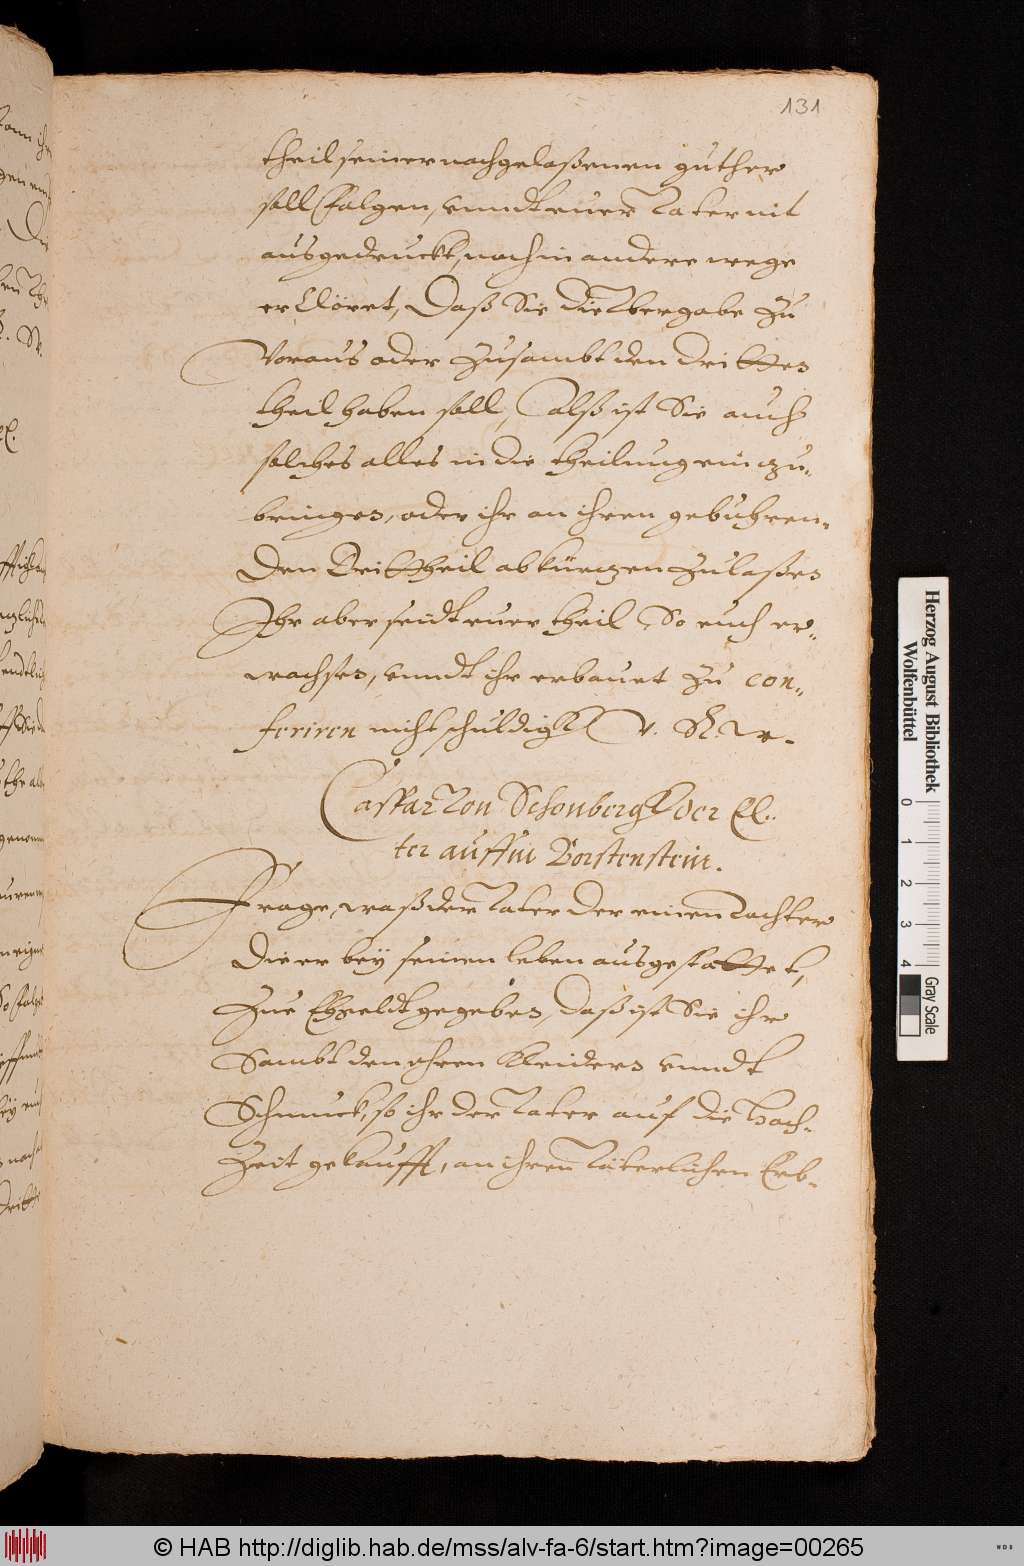 131
theil seiner nachgelaßenen guther
soll Folgen, vnndt euer Vater nit
ausgedruckt, noch in andere wege
erklöret, Daß Sie die Vbergabe zu
Voraus oder zusambt den dritten
theil haben soll, Alß ist Sie auch
solches alles in die theilung ein zu„
bringen, oder ihr an ihren gebuhren„
den Dritttheil abkürtzen zulaßen
Ihr aber seidt euer theil So euch er„
wachsen, vnndt ihr erbauet zu con„
feriren nicht schuldigk V. R. W.
Caspar Von Schonbergk der El„
ter auffm Borstenstein.
Frage, waß der Vater der einen Tochter
Die er bey seinen leben ausgestattet,
Zue Ehegeldt gegeben, daß ist Sie ihr
Sambt den ehren Kleidern vnndt
Schmuck, so ihr der Vater auf die Hoch„
Zeit gekaufft, an ihren Väterlichen Erb„
Herzog August Bibliothek
Wolfenbüttel
0 1 2 3 4
Gray Scale
© HAB http://diglib.hab.de/mss/alv-fa-6/start.htm?image=00265